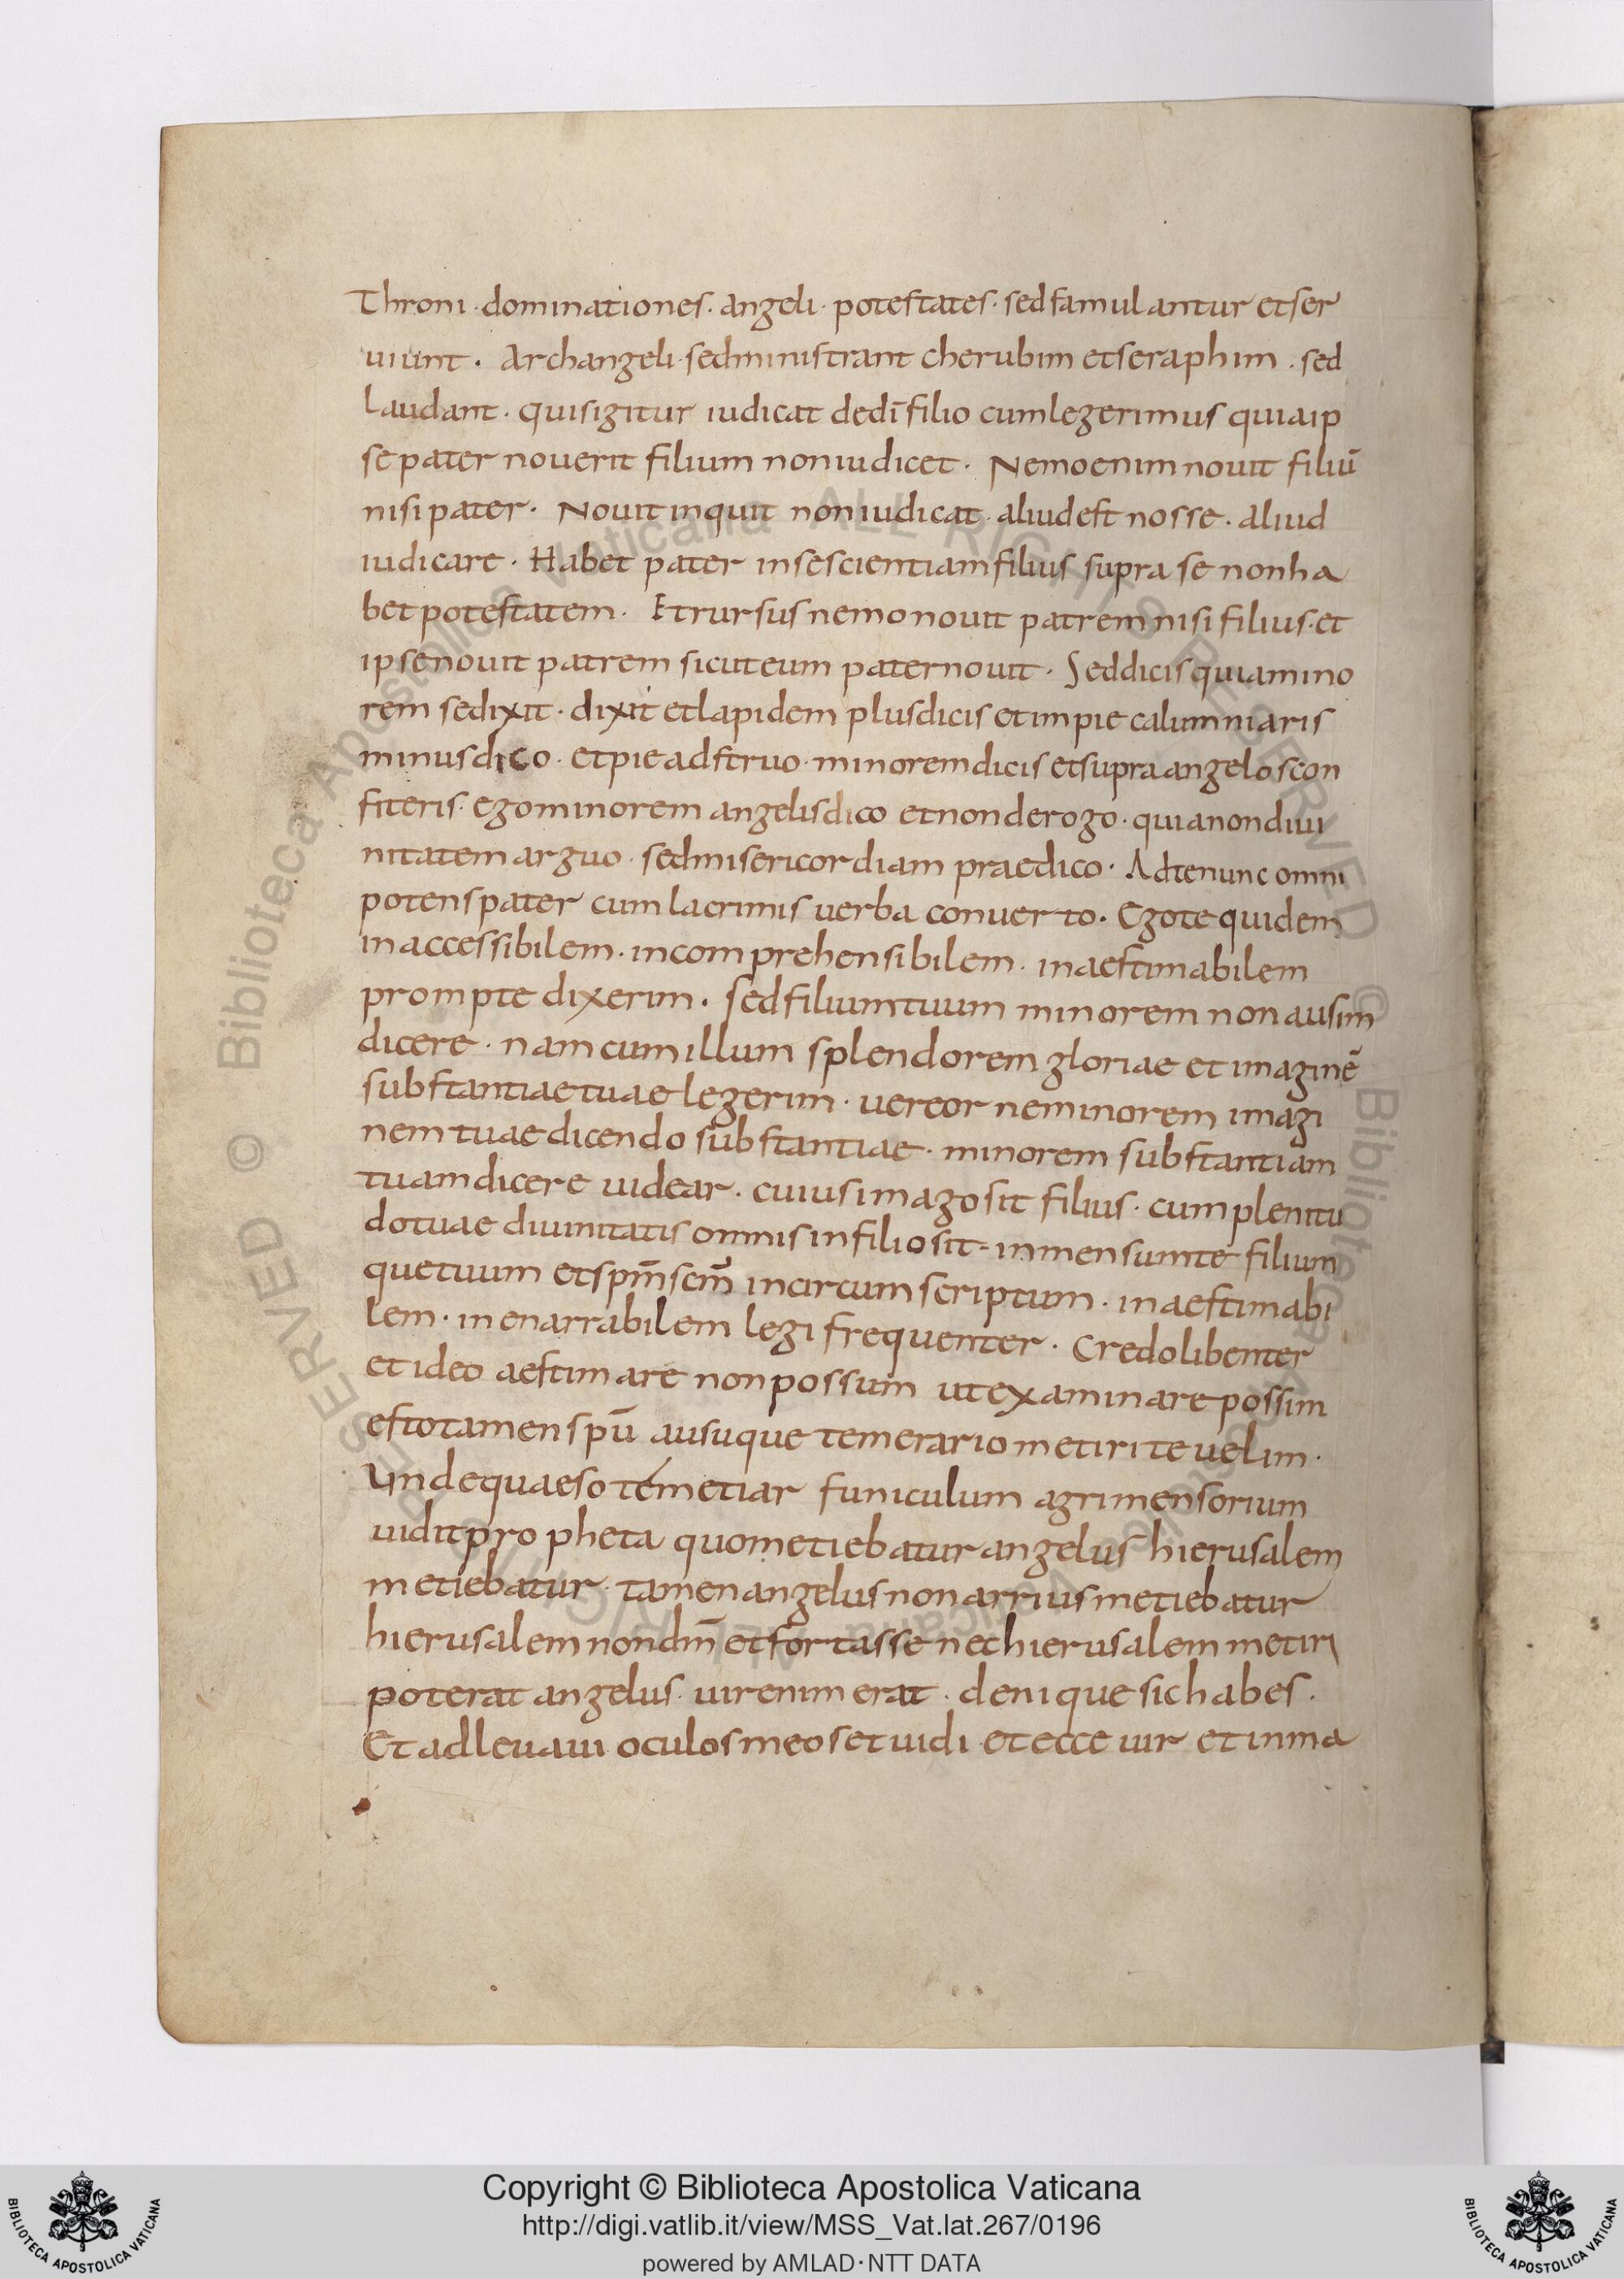 Throni · dominationes · angeli · potestates · sed famulantur et ser
uiunt · Archangeli · sed ministrant cherubim et seraphim · sed
laudant · quis igitur iudicat de dī filio cum legerimus quia ip
se pater nouerit filium non iudicet · Nemo enim nouit filiū
nisi pater · Nouit inquit non iudicat · aliud est nosse · aliud
iudicare · Habet pater in se scientiam filius supra se non ha
bet potestatem · Et rursus nemo nouit patrem nisi filius · et
ipse nouit patrem sicut eum pater nouit · Sed dicis quia mino
rem se dixit · dixit et lapidem plus dicis et impie calumniaris
minus dico · et pie adstruo · minorem dicis et supra angelos con
fiteris · ego minorem angelis dico et non derogo · quia non diui
nitatem arguo · sed misericordiam praedico · Ad te nunc omni
potens pater cum lacrimis uerba conuerto · Ego te quidem
inaccessibilem · incomprehensibilem · inaestimabilem
prompte dixerim · sed filium tuum minorem non ausim
dicere · nam cum illum splendorem gloriae et imaginē
substantiae tuae legerim · uereor ne minorem imagi
nem tuae dicendo substantiae · minorem substantiam
tuam dicere uidear · cuius imago sit filius · cum plenitu
do tuae diuinitatis omnis in filio sit - inmensum te filium
que tuum et sp̄m sc̄m incircumscriptum · inaestimabi
lem · inenarrabilem legi frequenter · Credo libenter
et ideo aestimare non possum ut examinare possim
esto tamen spū ausuque temerario metiri te uelim ·
Unde quaeso te metiar funiculum agrimensorium
uidit propheta quo metiebatur angelus hierusalem
metiebatur · tamen angelus non arrius metiebatur
hierusalem non dm̄ et fortasse nec hierusalem metiri
poterat angelus · uir enim erat · denique sic habes ·
Et adleuaui oculos meos et uidi · et ecce uir et in ma
Copyright © Biblioteca Apostolica Vaticana
http://digi.vatlib.it/view/MSS_Vat.lat.267/0196
powered by AMLAD · NTT DATA
BIBLIOTECA APOSTOLICA VATICANA
BIBLIOTECA APOSTOLICA VATICANA